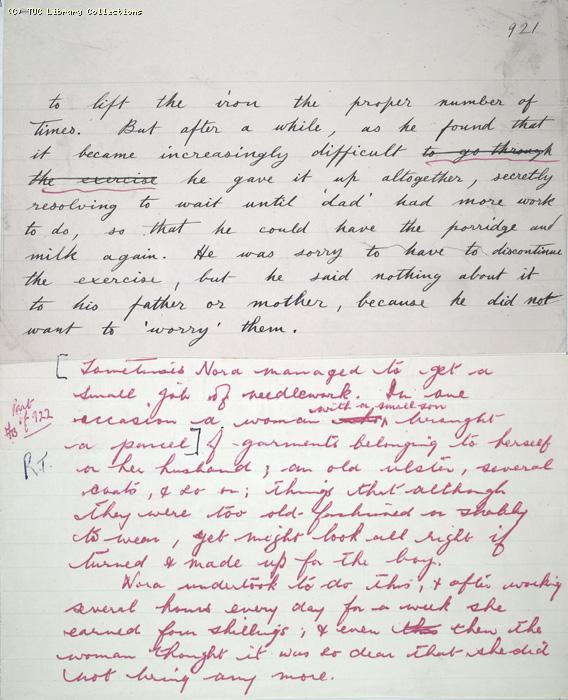 (C) TUC Library Collections
921
to lift the iron the proper number of
times. But after a while, as he found that
it became increasingly difficult to go through
the exercise he gave it up altogether, secretly
resolving to wait until 'dad' had more work
to do, so that he could have the porridge and
milk again. He was sorry to have to discontinue
the exercise, but he said nothing about it
to his father or mother, because he did not
want to 'worry' them.
[Sometimes Nora managed to get a
small job of needlework. On one
with a small son
occasion a woman brought
a parcel] of garments belonging to herself
or her husband; an old ulster, several
coats, & so on; things that although
they were too old-fashioned or shabby
to wear, yet might look all right if
turned & made up for the boy.
Nora undertook to do this, & after working
several hours every day for a week she
earned four shillings; & even this then the
woman thought it was so dear that she did
not bring any more.
Part
of 922
R.T.